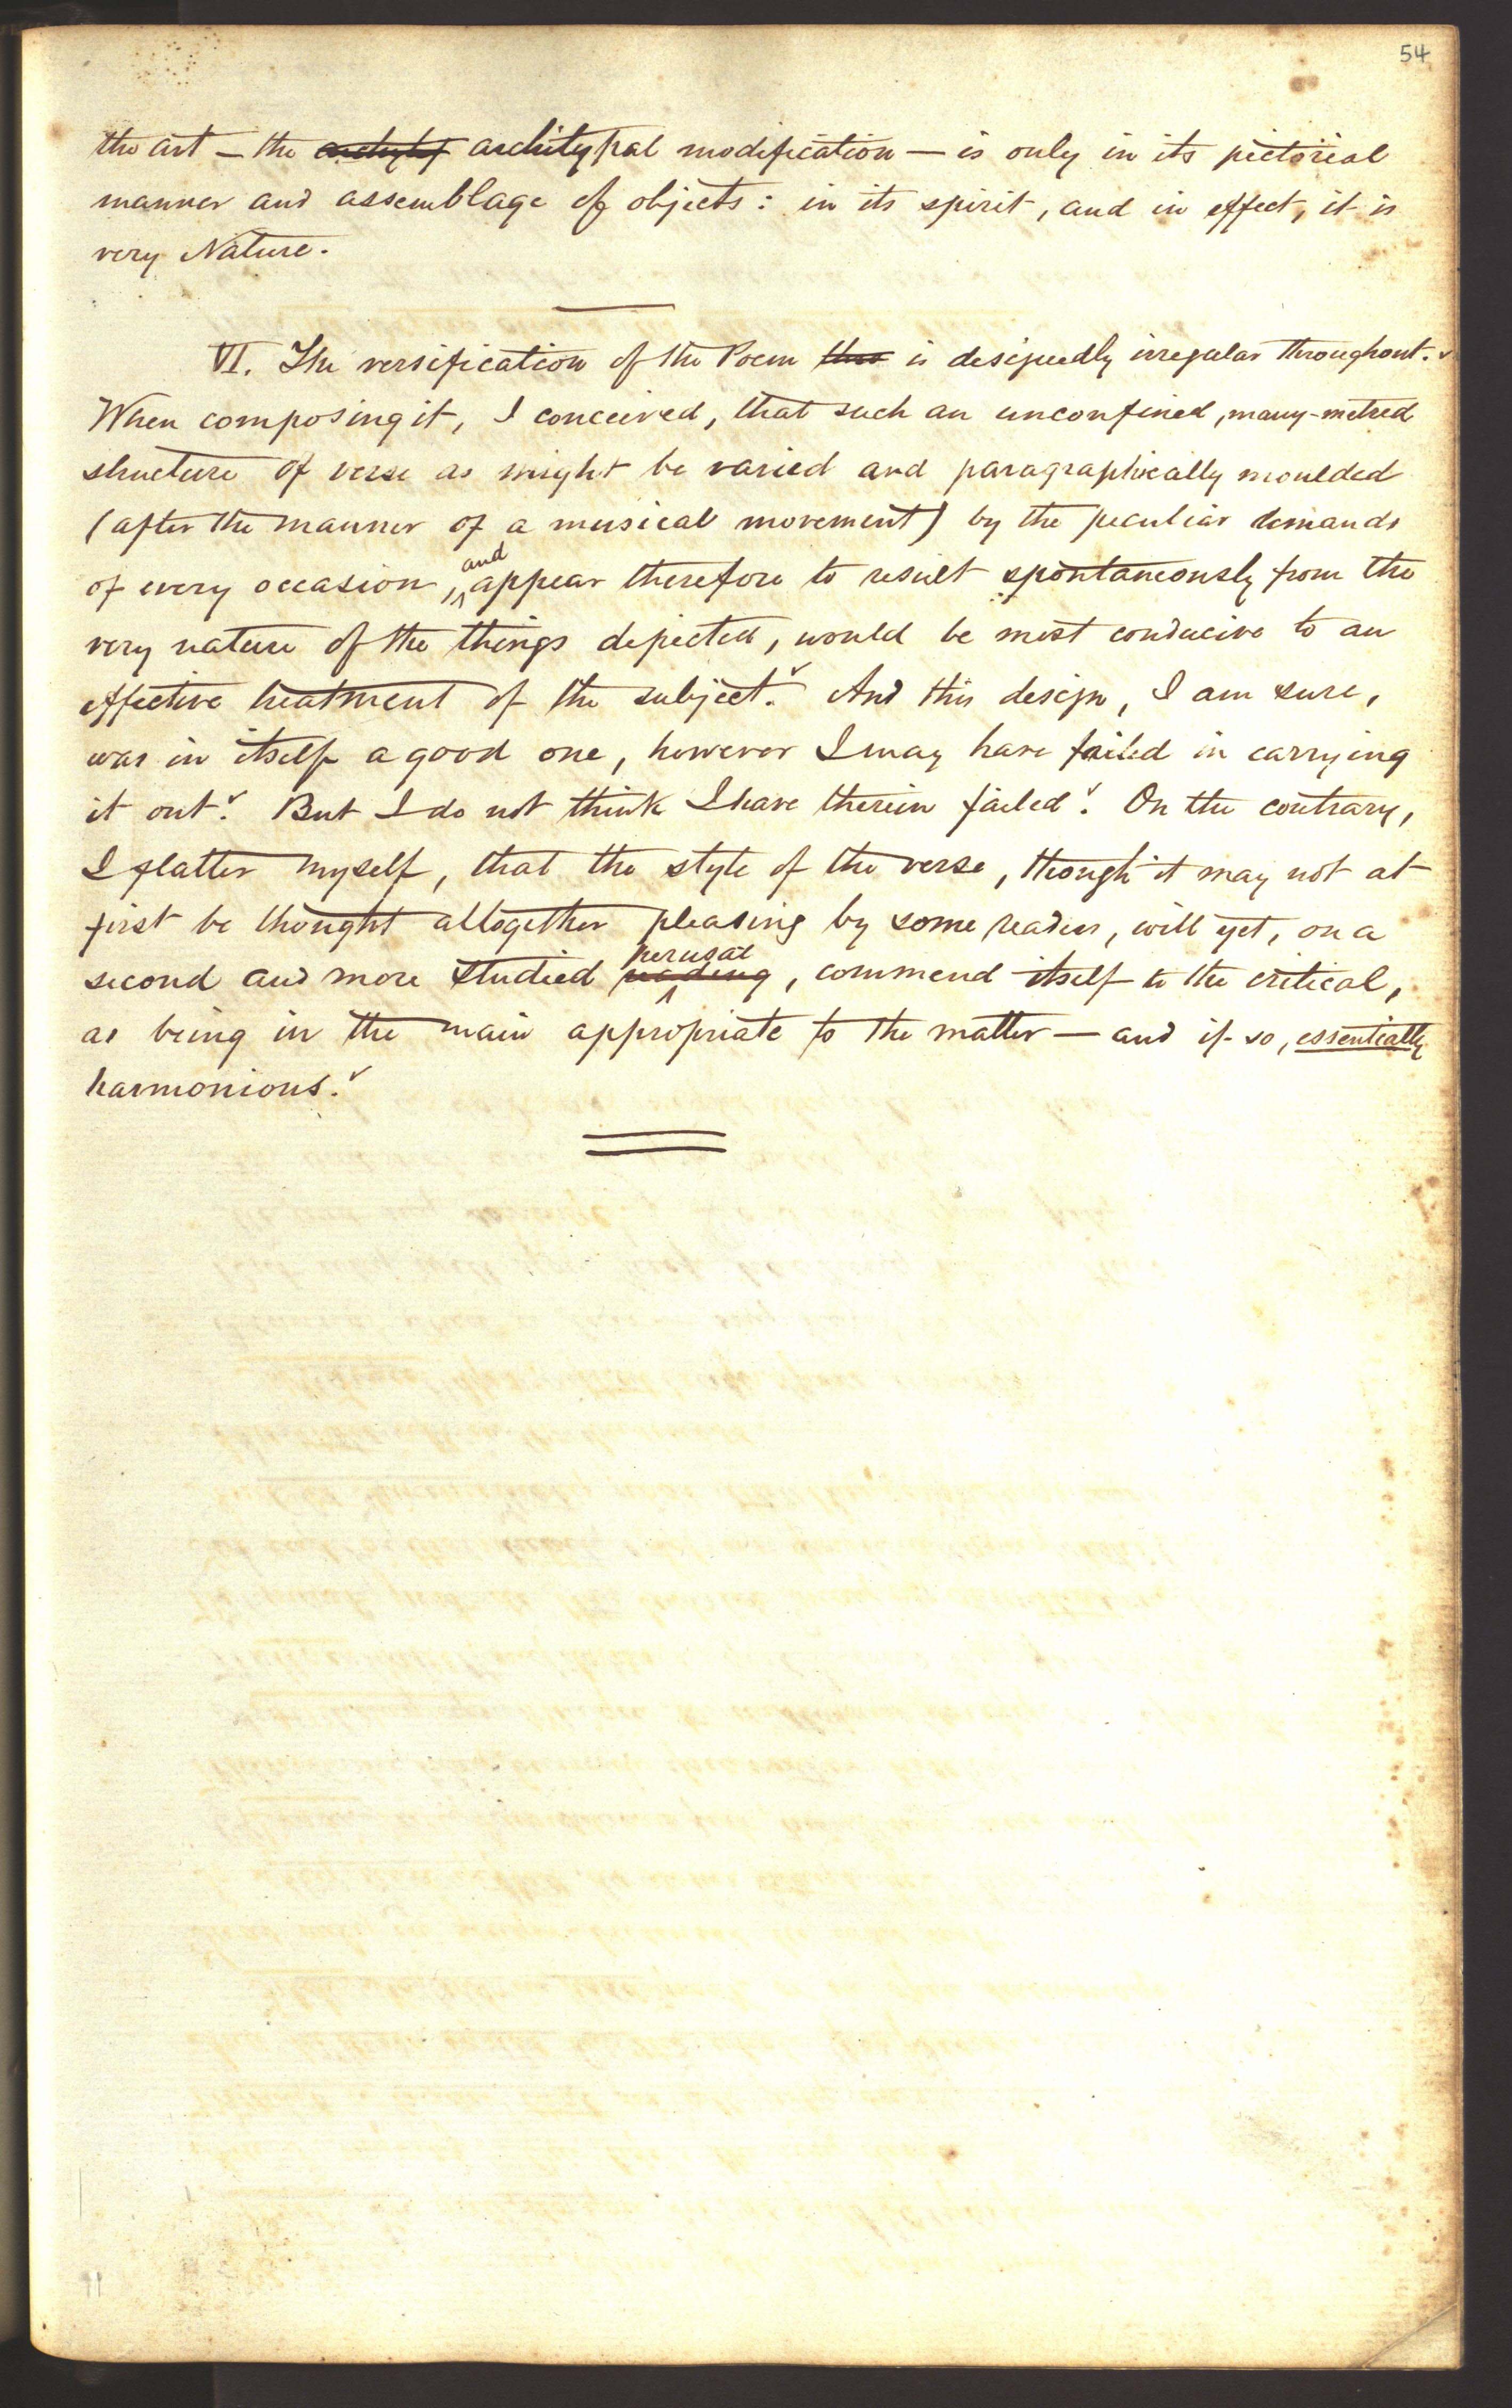 54
the art — the architypal modification — is only in its pictorial
manner and assemblage of objects: in its spirit, and in effect, it is
very Nature.
VI. The versification of the Poem thro is designedly irregular throughout.
When composing it, I conceived, that such an unconfined, many-metred
structure of verse as might be varied and paragraphically moulded
(after the manner of a musical movement) by the peculiar demands
of every occasion, and appear therefore to result spontaneously from the
very nature of the things depicted, would be most conducive to an
effective treatment of the subject. And this design, I am sure,
was in itself a good one, however I may have failed in carrying
it out. But I do not think I have therein failed. On the contrary,
I flatter myself, that the style of the verse, though it may not at
first be thought altogether pleasing by some readers, will yet, on a
second and more studied reading perusal, commend itself to the critical,
as being in the main appropriate to the matter — and if so, essentially
harmonious.